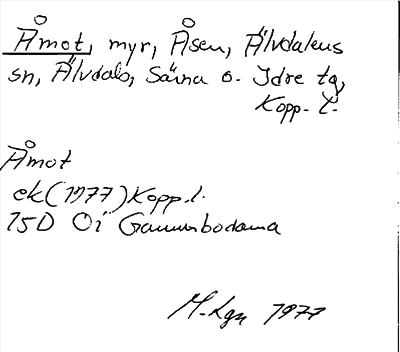 Åmot, myr, Åsen, Älvdalens
sn, Älvdals, Särna o. Idre tg,
Kopp. l.
Åmot
ek (1977) Kopp. l.
15D 0i Gammbodarna
M-Lgn 1977